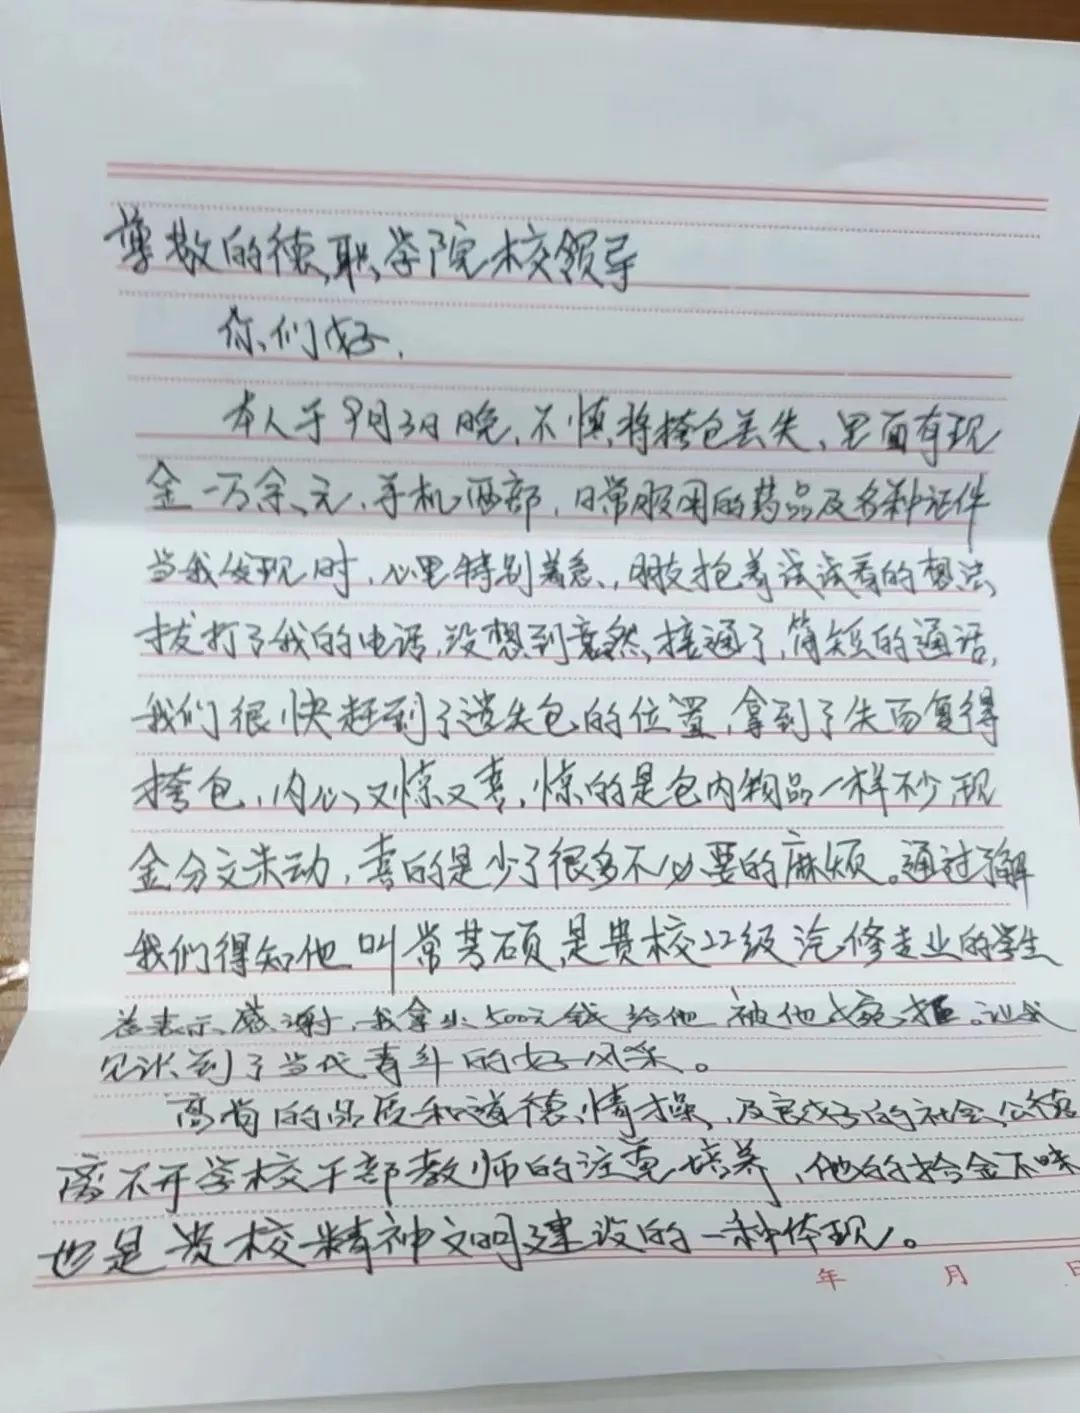 尊敬的德职学院校领导
你们好,
本人于9月3日晚,不慎将挎包丢失,里面有现
金一万余元,手机两部,日常服用的药品及各种证件
当我发现时,心里特别着急,朋友抱着试试看的想法
拨打了我的电话,没想到竟然接通了,简短的通话,
我们很快赶到了遗失包的位置,拿到了失而复得
挎包,内心又惊又喜,惊的是包内物品一样不少,现
金分文未动,喜的是少了很多不必要的麻烦。通过了解
我们得知他叫常 硕,是贵校22级汽修专业的学生
为表示感谢,我拿出500元钱给他 被他婉拒。让我
见识到了当代青年的好风采。
高尚的品质和道德情操,及良好的社会公德
离不开学校干部教师的注重培养,他的拾金不昧
也是贵校精神文明建设的一种体现。
年 月 日